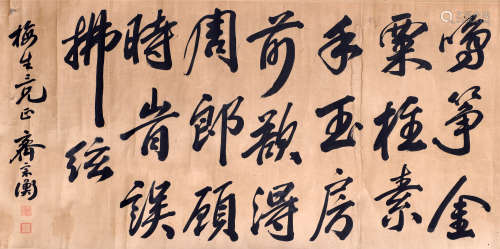 鳴箏金
粟柱素
手玉房
前欲得
周郎顧
時旹誤
拂絃
梅生亮正 齊宗衡